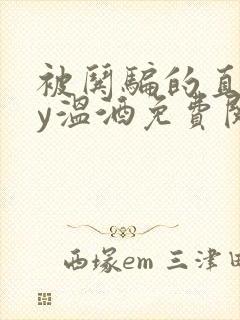 被鬨騙的直
y溫酒免費閱
西塚em 三津田